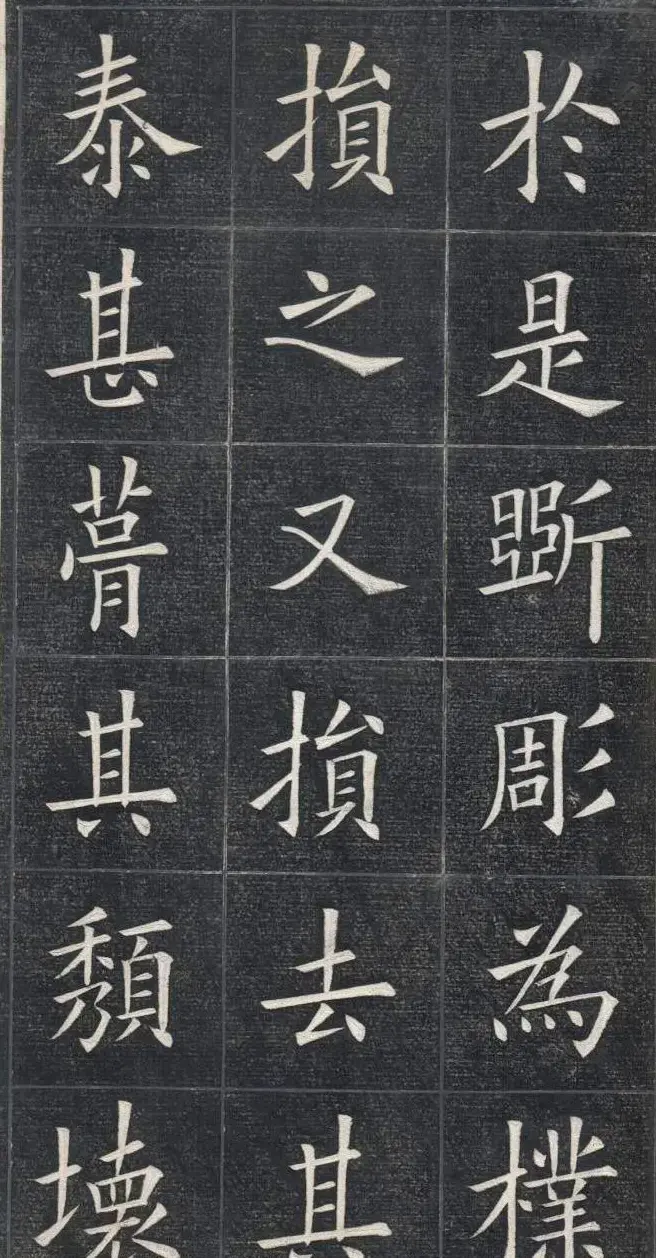 於是斲彫為樸
損之又損去其
泰甚葺其頹壞